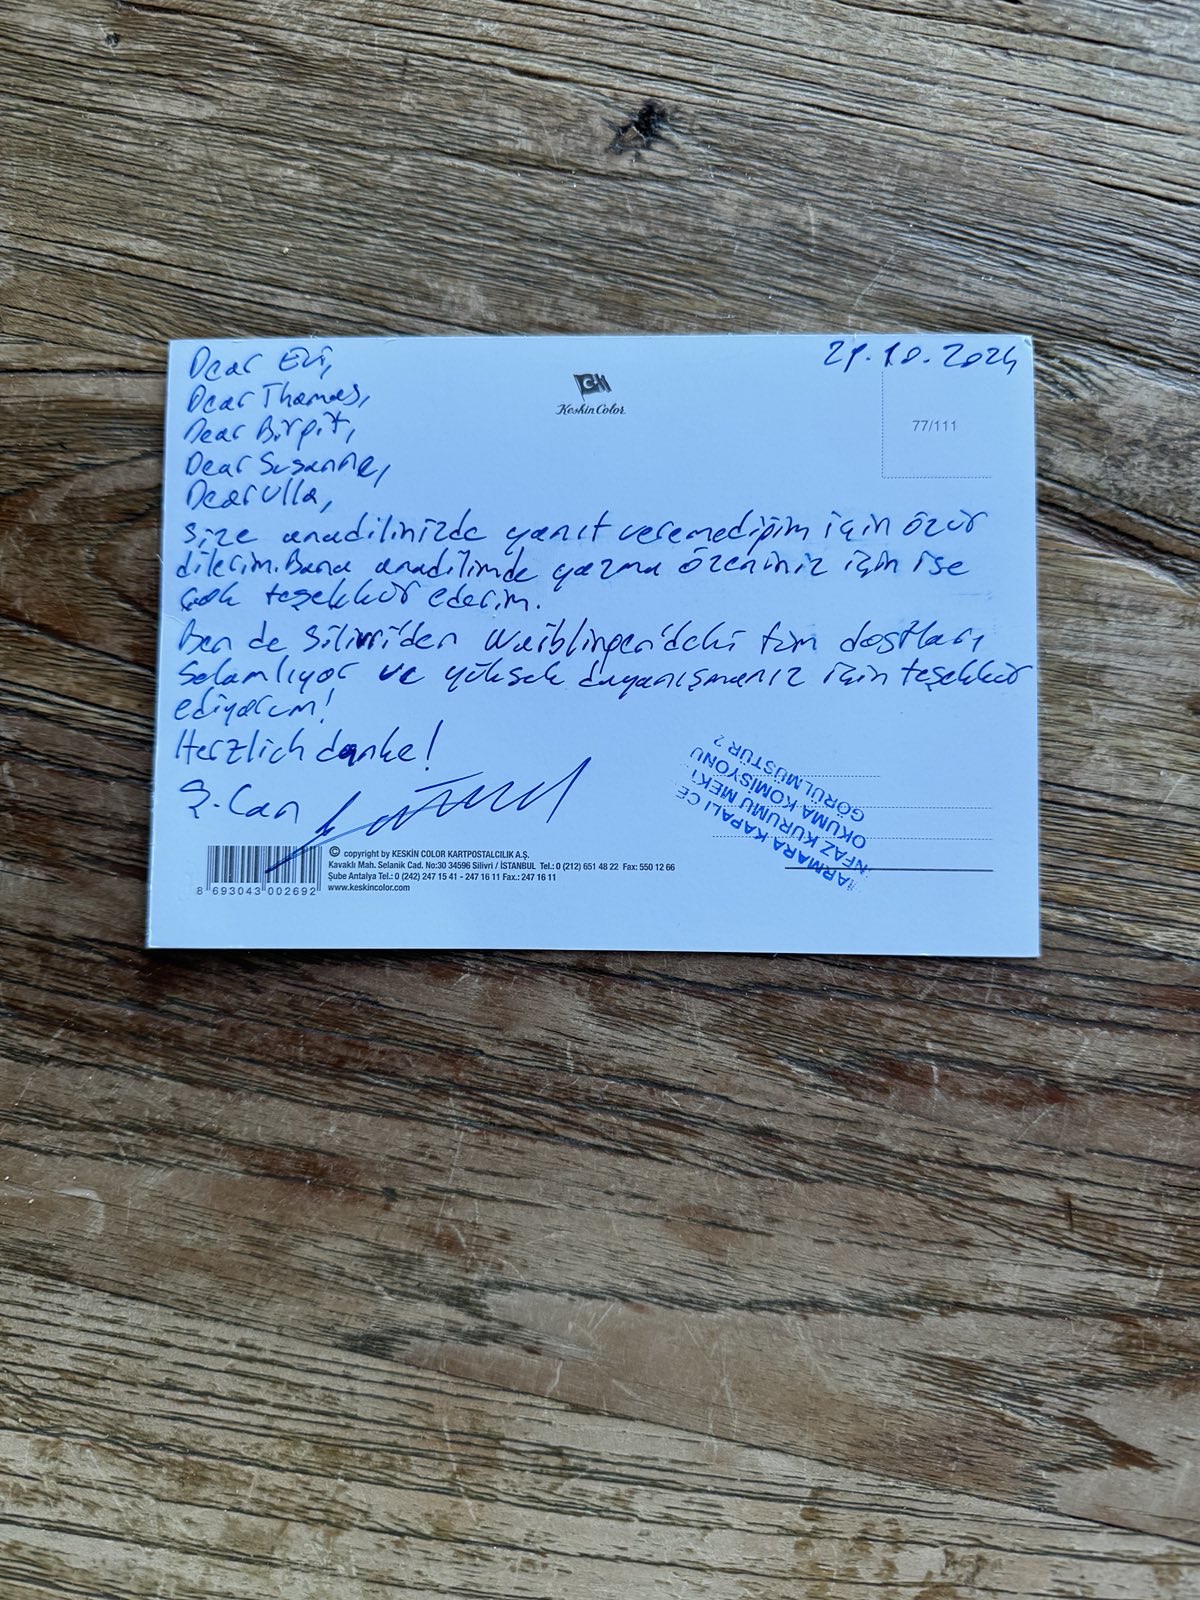 Dear Evi,
21.10.2024
Dear Thomas,
Dear Birgit,
Dear Susanne,
Dear Ulla,
Keskin Color
77/111
Size anadilinizde yanıt veremediğim için özür
dilerim. Bana anadilimde yazma özeniniz için ise
çok teşekkür ederim.
Ben de Silivri'den Waiblingen'deki tüm dostları
selamlıyor ve yüksek dayanışmanız için teşekkür
ediyorum!
Herzlich danke!
Ş. Can
ARMARA KAPALI CE
NFAZ KURUMU MEKT
OKUMA KOMİSYONU
GÖRÜLMÜŞTÜR 2
8 693043 002692
© copyright by KESKİN COLOR KARTPOSTALCILIK A.Ş.
Kavaklı Mah. Selanik Cad. No:30 34596 Silivri / İSTANBUL Tel.: 0 (212) 651 48 22 Fax: 550 12 66
Şube Antalya Tel.: 0 (242) 247 15 41 - 247 16 11 Fax.: 247 16 11
www.keskincolor.com